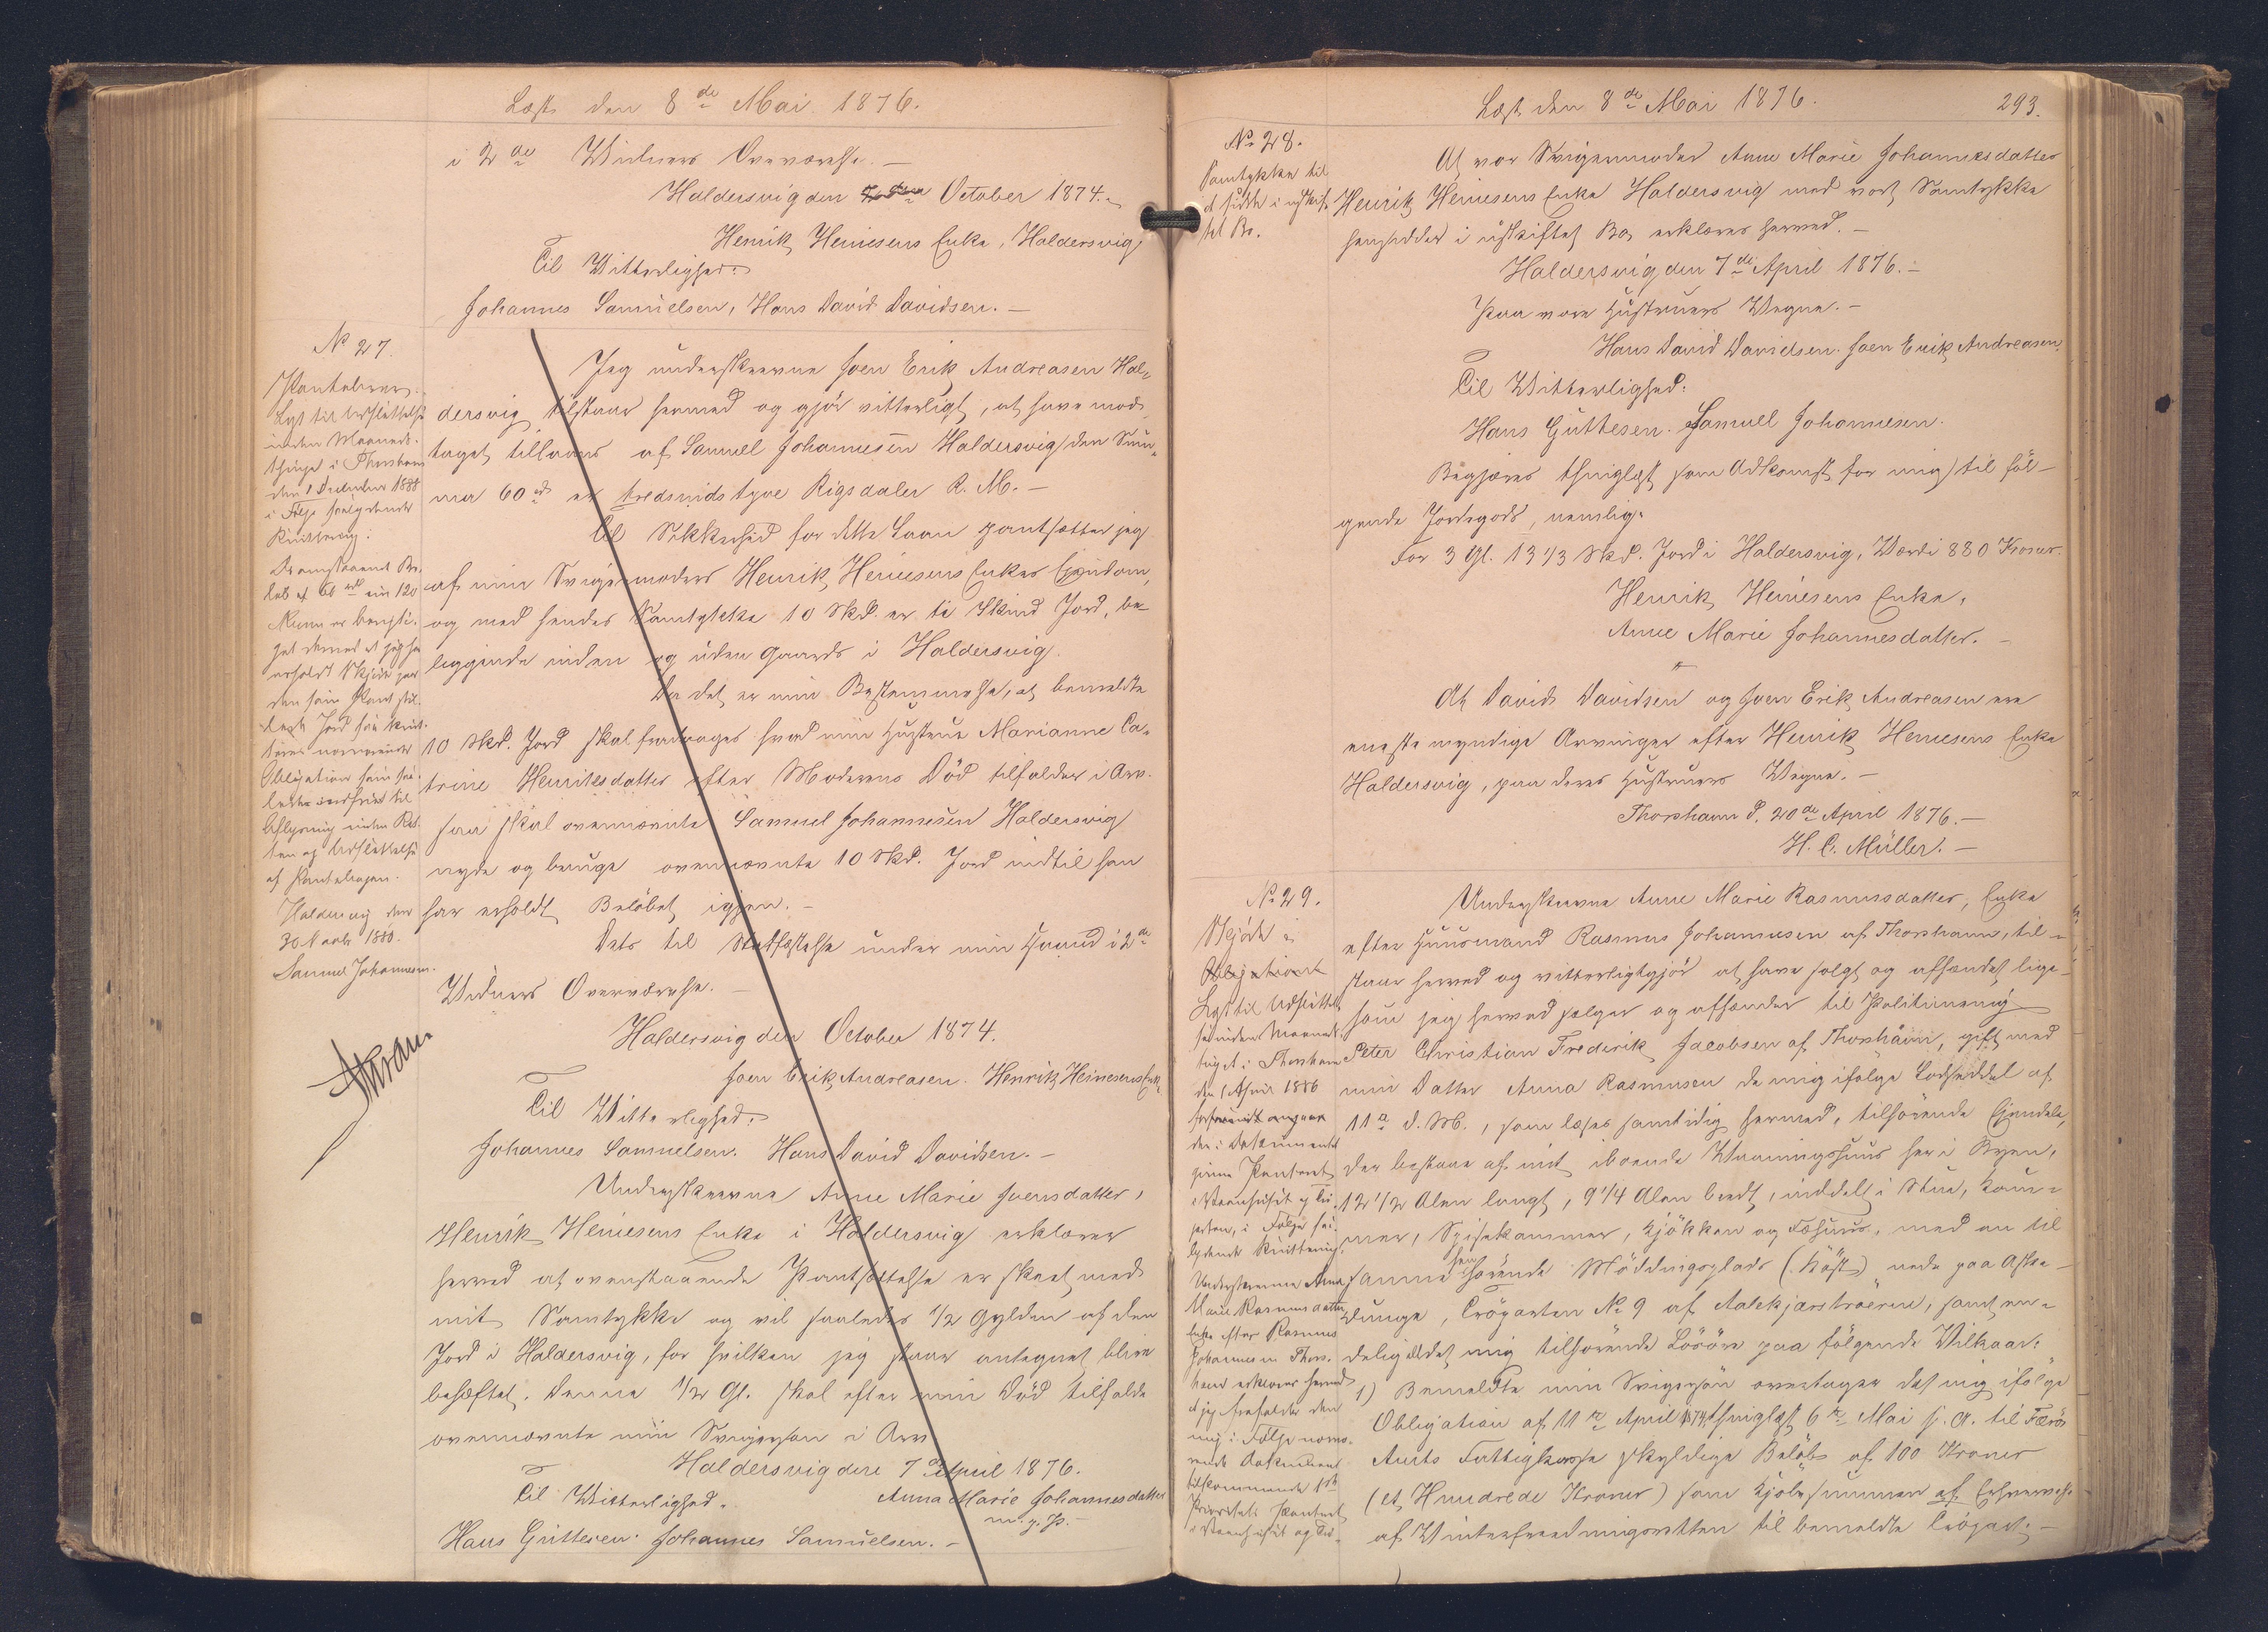 Læst den 8de Mai 1876.
i 2de Vidners Overværelse. —
Haldersvig den October 1874.
Henrik Heinesens Enke, Haldersvig
Til Vitterlighed:
Johannes Samuelsen, Hans David Davidsen. —
No 27.
Pantebrev.
Lyst til Udslettelse
inden Maaneds-
thinget i Thorshavn
den 1 December 1888
i Følge saalydende
Kvittering:
Ovenstaaende Be-
løb af 60 rd er 120
Kroner er berigti-
get derved at jeg har
erholdt Skjøde paa
den som Pant stil-
lede Jord
nærværende
Obligation som saa-
ledes indfriet til
Aflysning inden Ret-
ten og Udslettelse
af Pantebogen.
Haldersvig den
30 Novbr 1880.
Samuel Johannesen.
Jeg underskrevne Joen Erik Andreasen Hal-
dersvig tilstaar hermed og gjør vitterligt, at have mod-
taget tillaans af Samuel Johannesen Haldersvig den Sum-
ma 60 rd er tredsindstyve Rigsdaler R. M. —
Til Sikkerhed for dette Laan pantsætter jeg
af min Svigermoders Henrik Heinesens Enkes Ejendom,
og med hendes Samtykke 10 Skd. er ti Skind Jord, be-
liggende inden og uden Gaards i Haldersvig.
Da det er min Bestemmelse, at bemeldte
10 Skd. Jord skal fradrages hvad min Hustrue Marianne Ca-
trine Henriksdatter efter Moderens Død tilfalder i Arv.
saa skal ovennævnte Samuel Johannesen Haldersvig
nyde og bruge ovennævnte 10 Skd. Jord indtil han
har erholdt Beløbet igjen. —
Dets til Stadfæstelse under min Haand i 2de
Vidners Overværelse. —
Haldersvig den October 1874.
Joen Erik Andreasen. Henrik Heinesens Enke
Til Vitterlighed:
Johannes Samuelsen. Hans David Davidsen. —
Underskrevne Anne Marie Joensdatter,
Henrik Heinesens Enke i Haldersvig erklærer
herved at ovenstaaende Pantsættelse er skeet med
mit Samtykke og vil saaledes 1/2 Gylden af den
Jord i Haldersvig, for hvilken jeg staar antegnet blive
behæftet. Denne 1/2 Gl. skal efter min Død tilfalde
ovennævnte min Svigersøn i Arv
Haldersvig den 7de April 1876.
Til Vitterlighed. Anna Marie Johannesdatter
m. p. P. —
Hans Guttesen. Johannes Samuelsen. —
Læst den 8de Mai 1876.
293.
No 28.
Samtykke til
at sidde i uskif-
tet Bo.
At vor Svigermoder Anne Marie Johannesdatter
Henrik Heinesens Enke Haldersvig med vort Samtykke
hensidder i uskiftet Bo, erklæres herved. —
Haldersvig den 7de April 1876. —
Paa vore Hustruers Vegne. —
Hans David Davidsen. Joen Erik Andreasen.
Til Vitterlighed:
Hans Guttesen. Samuel Johannesen.
Begjæres thinglæst som Adkomst for mig til føl-
gende Jordegods, nemlig:
For 3 Gl. 13 1/3 Skd. Jord i Haldersvig, Værdi 880 Kroner.
Henrik Heinesens Enke,
Anne Marie Johannesdatter. —
At Davids Davidsen og Joen Erik Andreasen ere
eneste myndige Arvinger efter Henrik Heinesens Enke
Haldersvig, paa deres Hustruers Vegne. —
Thorshavn d. 20de April 1876. —
H. C. Müller. —
No 29.
Skjøde
Obligation
Lyst til Udslettel-
se inden Maaneds-
tinget i Thorshavn
den 1 April 1886
forsaavidt angaar
den i Dokumentet
givne Panteret
i Vaanehuset og Trø-
parten, i Følge saa-
lydende Kvittering.
Underskrevne Anne
Marie Rasmusdatter
Enke efter Rasmus
Johannesen Thors-
havn erklærer herved
at jeg frafalder den
mig i Følge nærvæ-
rende Dokument
tilkommende 1ste
Prioritets Panteret
i Vaanehuset og Trø-
Underskrevne Anne Marie Rasmusdatter, Enke
efter Huusmand Rasmus Johannesen af Thorshavn, til-
staar herved og vitterliggjør at have solgt og afhændet, lige-
som jeg herved sælger og afhænder til Politimenig
Peter Christian Frederik Jacobsen af Thorshavn, gift med
min Datter Anna Rasmussen de mig ifølge Lodseddel af
11te d. M., som læses samtidig hermed, tilhørende Ejendele,
der bestaar af mit iboende Vaaningshuus her i Byen,
12 1/2 Alen langt, 9 1/4 Alen bredt, inddelt i Stue, Kam-
mer, Spisekammer, Kjøkken og Fæhuus, med en til
samme hørende Møddingsplads (Køst) nede paa Aske-
dunge, Trøparten No 9 af Aalekjærstrøerne, samt en-
delig aldet mig tilhørende Løsøre paa følgende Vilkaar:
1) Bemeldte min Svigersøn overtager det mig ifølge
Obligation af 11te April 1874, thinglæst 6te Mai s. A. til Færø
Amts Fattigkasse skyldige Beløb af 100 Kroner
(et Hundrede Kroner) som Kjøbesummen af Erhvervelse
af Vinterfredningsretten til bemeldte Trøpart. —